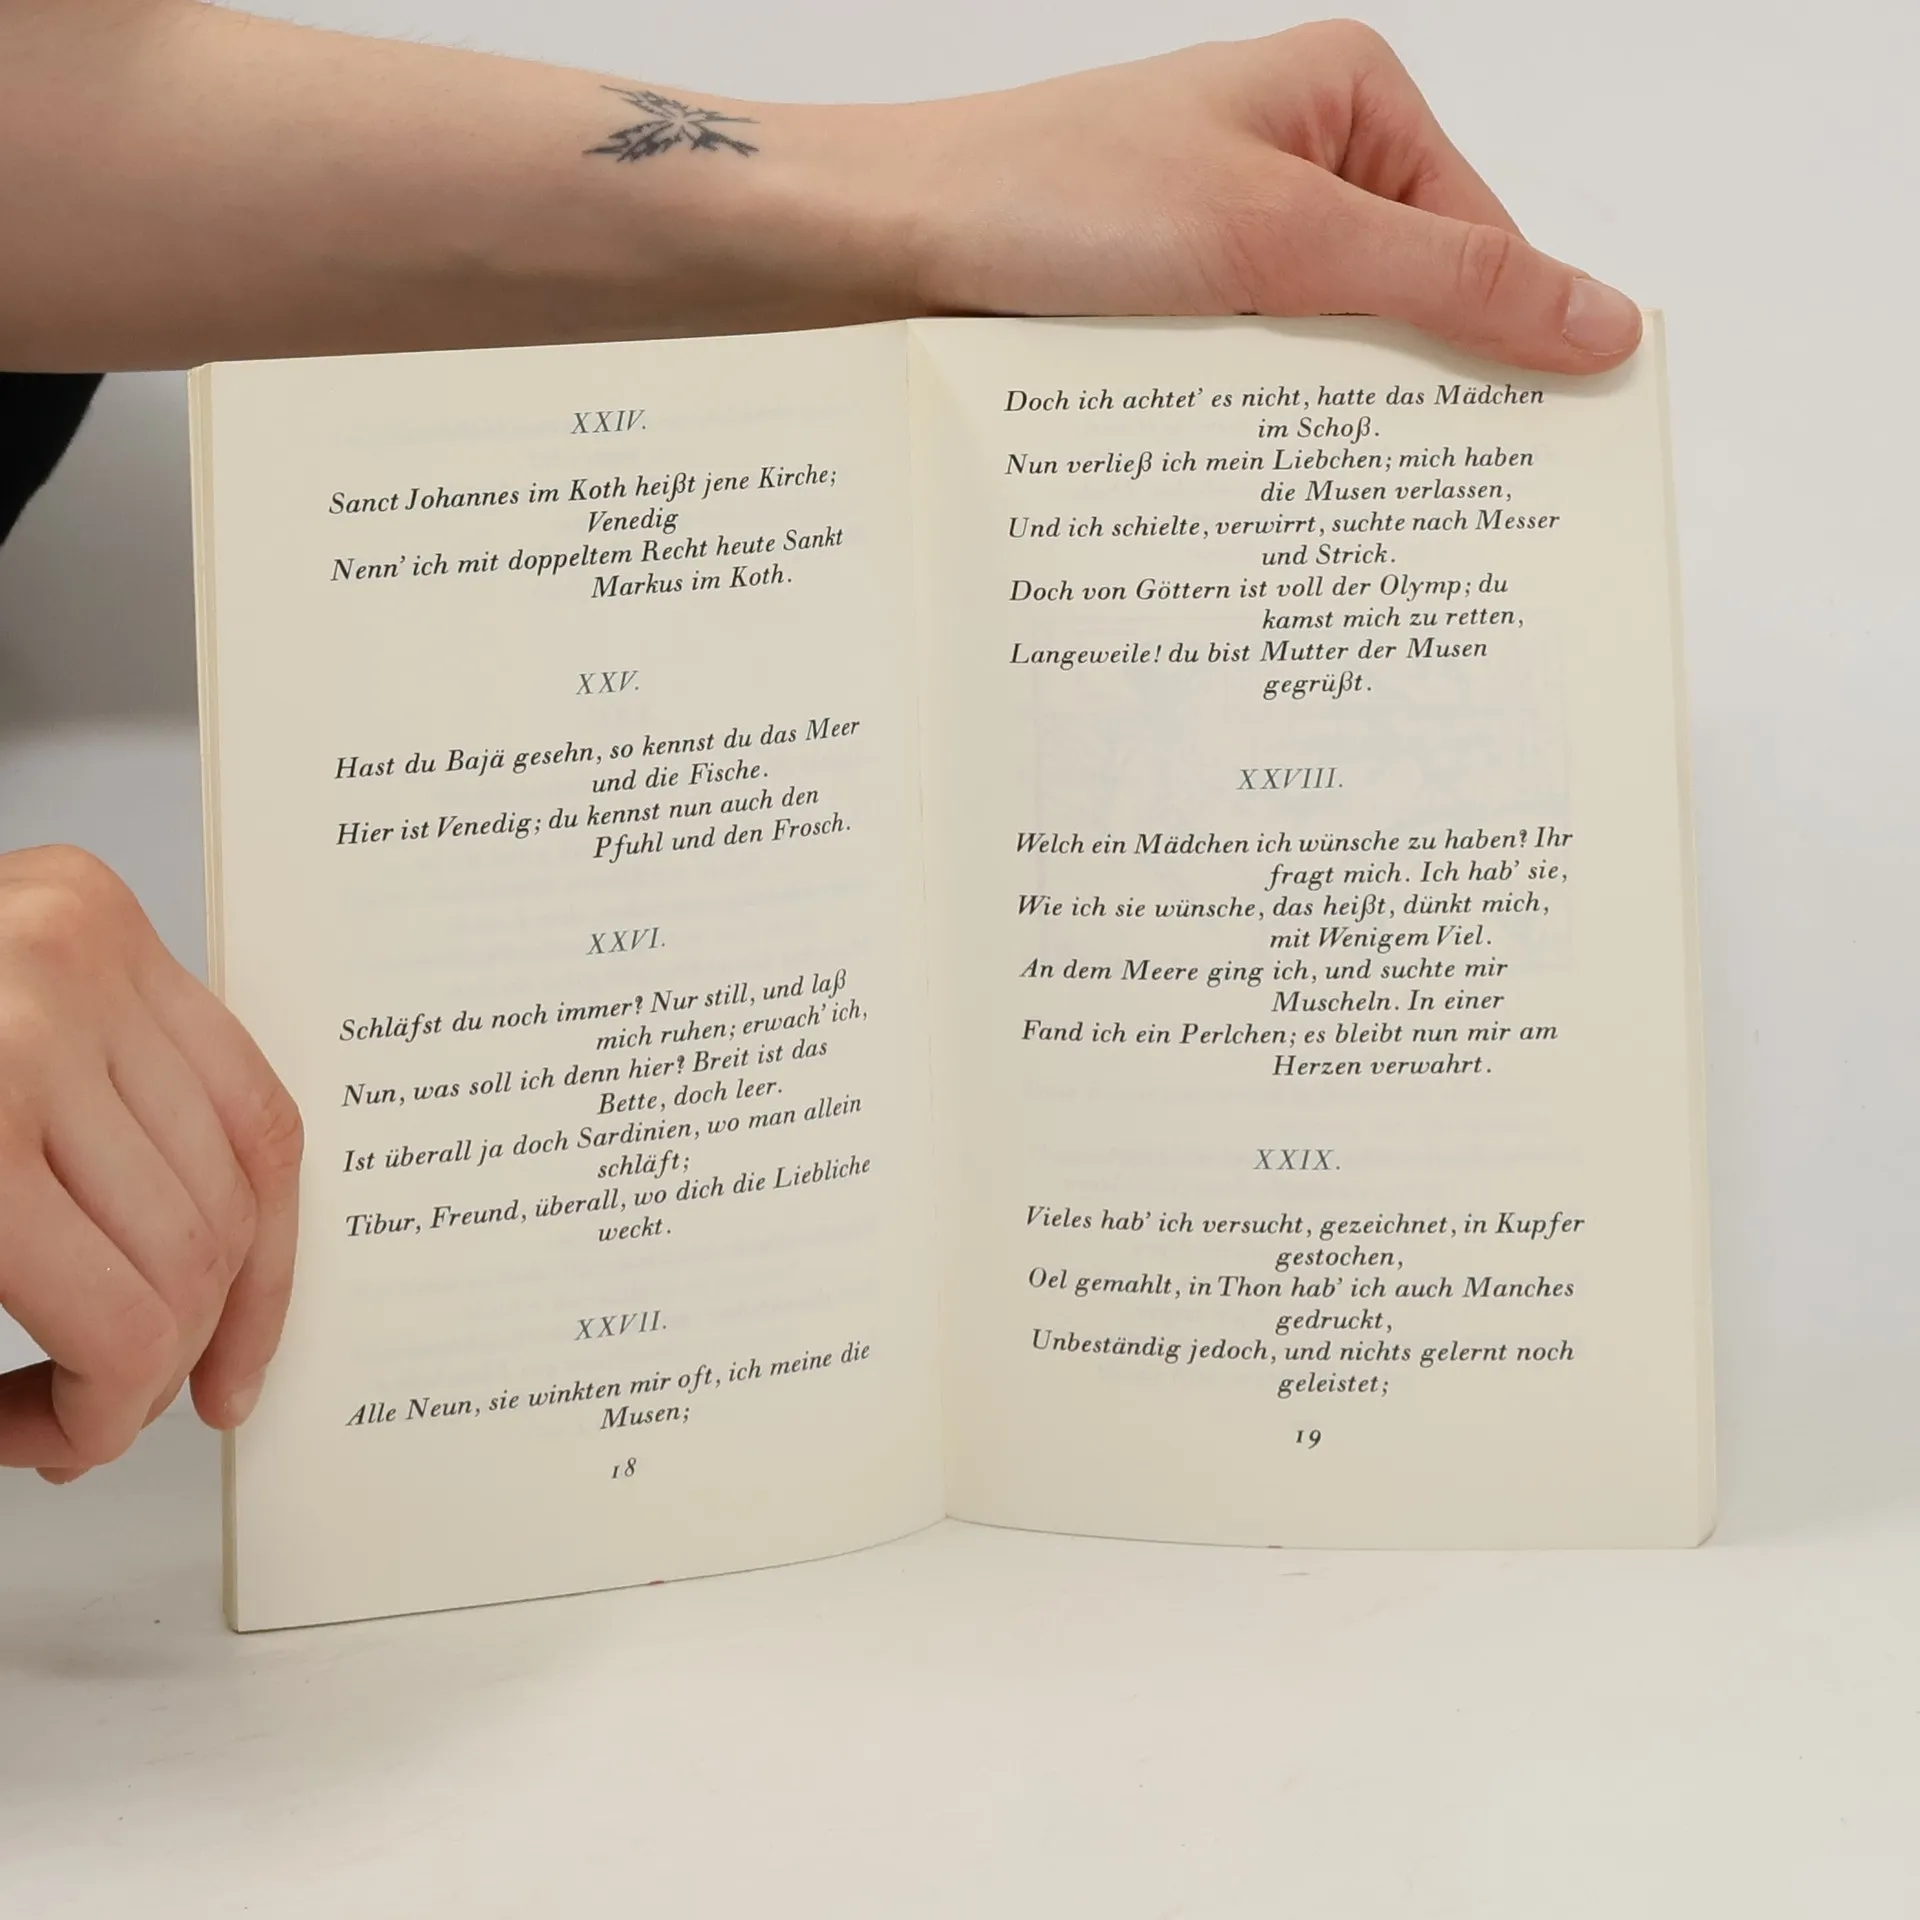 XXIV.
Sanct Johannes im Koth heißt jene Kirche;
Venedig
Nenn' ich mit doppeltem Recht heute Sankt
Markus im Koth.
XXV.
Hast du Bajä gesehn, so kennst du das Meer
und die Fische.
Hier ist Venedig; du kennst nun auch den
Pfuhl und den Frosch.
XXVI.
Schläfst du noch immer? Nur still, und laß
mich ruhen; erwach' ich,
Nun, was soll ich denn hier? Breit ist das
Bette, doch leer.
Ist überall ja doch Sardinien, wo man allein
schläft;
Tibur, Freund, überall, wo dich die Liebliche
weckt.
XXVII.
Alle Neun, sie winkten mir oft, ich meine die
Musen;
18
Doch ich achtet' es nicht, hatte das Mädchen
im Schoß.
Nun verließ ich mein Liebchen; mich haben
die Musen verlassen,
Und ich schielte, verwirrt, suchte nach Messer
und Strick.
Doch von Göttern ist voll der Olymp; du
kamst mich zu retten,
Langeweile! du bist Mutter der Musen
gegrüßt.
XXVIII.
Welch ein Mädchen ich wünsche zu haben? Ihr
fragt mich. Ich hab' sie,
Wie ich sie wünsche, das heißt, dünkt mich,
mit Wenigem Viel.
An dem Meere ging ich, und suchte mir
Muscheln. In einer
Fand ich ein Perlchen; es bleibt nun mir am
Herzen verwahrt.
XXIX.
Vieles hab' ich versucht, gezeichnet, in Kupfer
gestochen,
Oel gemahlt, in Thon hab' ich auch Manches
gedruckt,
Unbeständig jedoch, und nichts gelernt noch
geleistet;
19